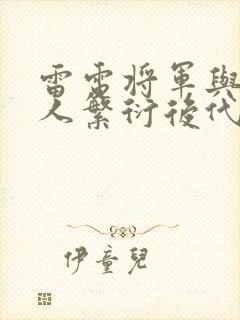 雷電將軍與
人繁衍後代
伊童兒